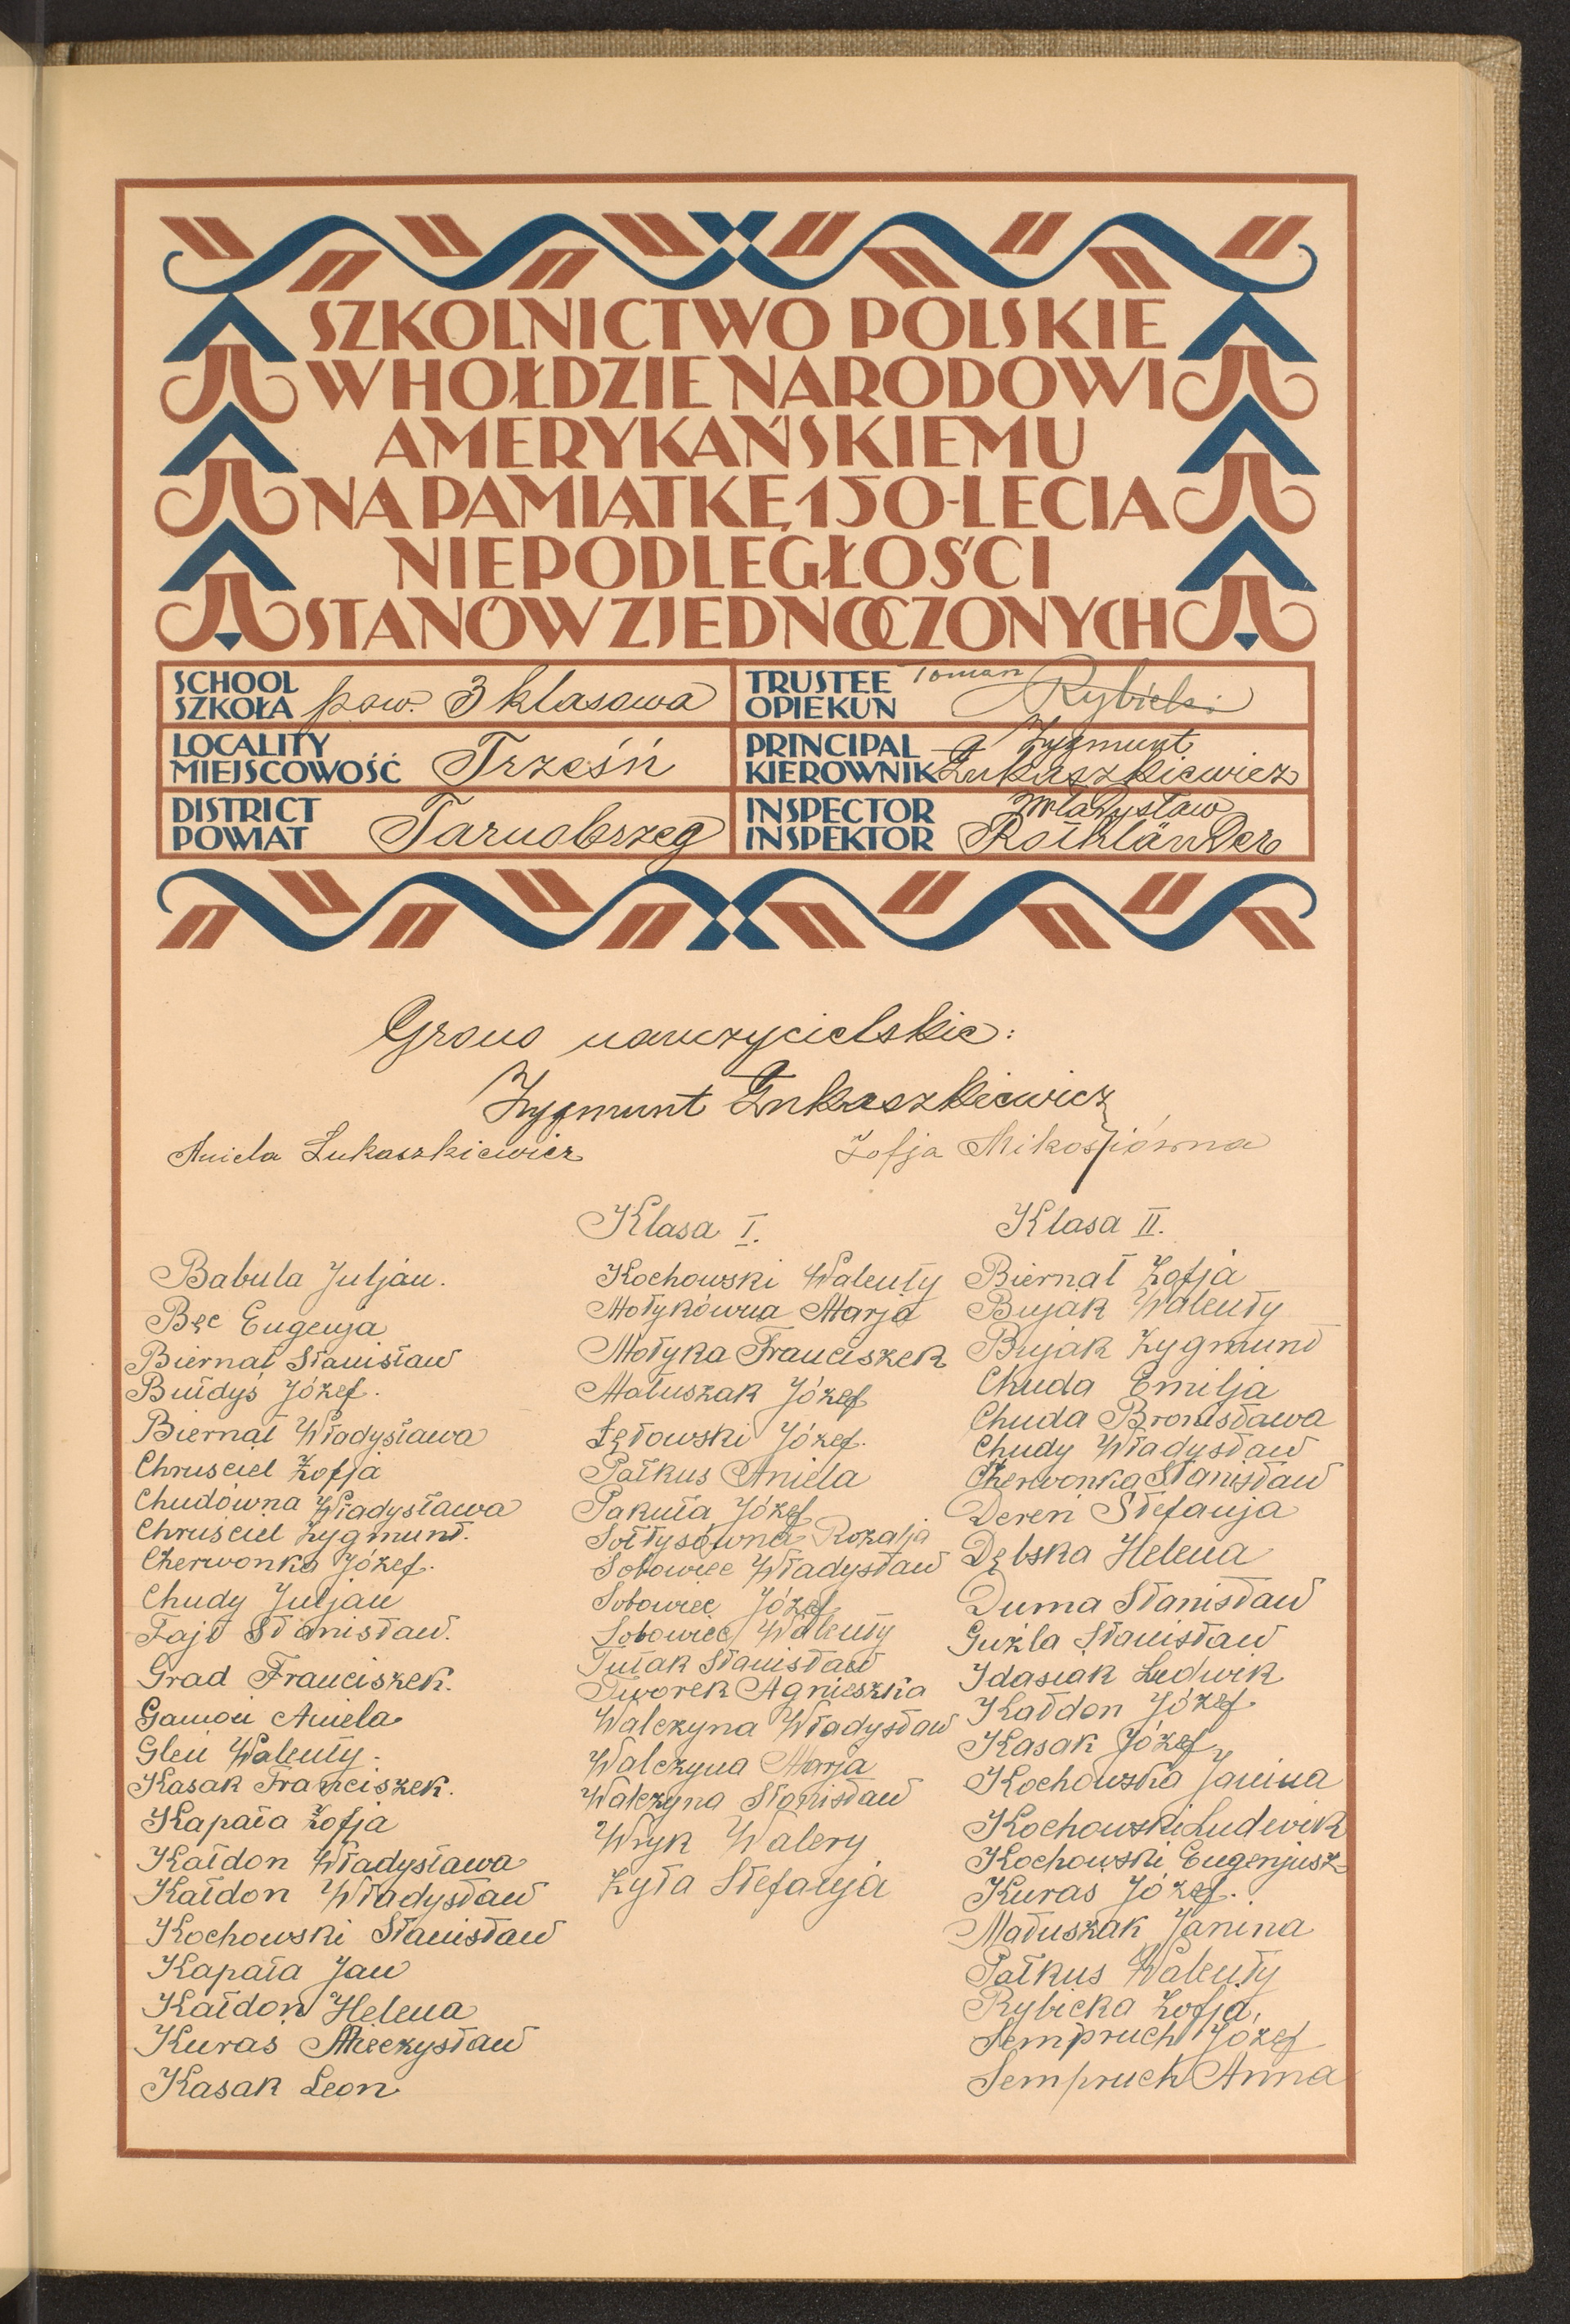 SZKOLNICTWO POLSKIE
W HOŁDZIE NARODOWI
AMERYKAŃSKIEMU
NA PAMIĄTKĘ 150-LECIA
NIEPODLEGŁOŚCI
STANÓW ZJEDNOCZONYCH
SCHOOL
SZKOŁA pow. 3 klasowa
TRUSTEE Roman
OPIEKUN Rybicki
LOCALITY
MIEJSCOWOŚĆ Trześń
PRINCIPAL Zygmunt
KIEROWNIK Łukaszkiewicz
DISTRICT
POWIAT Tarnobrzeg
INSPECTOR Władysław
INSPEKTOR Rothländer
Grono nauczycielskie:
Zygmunt Łukaszkiewicz
Aniela Łukaszkiewicz
Zofja Mikosziówna
Klasa I.
Babula Juljan.
Bęc Eugenja
Biernat Stanisław
Bułdyś Józef.
Biernat Władysława
Chruściel Zofja
Chudówna Władysława
Chruściel Zygmunt.
Czerwonka Józef.
Chudy Juljan
Fajt Stanisław.
Grad Franciszek.
Gamoń Aniela
Gleń Walenty.
Kasak Franciszek.
Kapała Zofja
Kałdon Władysława
Kałdon Władysław
Kochowski Stanisław
Kapała Jan
Kałdon Helena
Kuraś Mieczysław
Kasak Leon
Kochowski Walenty
Motykówna Marja
Motyka Franciszek
Matuszak Józef
Łętowski Józef.
Patkus Aniela
Pakuła Józef
Sołtysówna Rozalja
Sobowiec Władysław
Sobowiec Józef
Sobowiec Walenty
Tułak Stanisław
Tworek Agnieszka
Walczyna Władysław
Walczyna Marja
Walczyna Stanisław
Wryk Walery
Zyła Stefanja
Klasa II.
Biernat Zofja
Bujak Walenty
Bujak Zygmunt
Chuda Emilja
Chuda Bronisława
Chudy Władysław
Czerwonka Stanisław
Dereń Stefanja
Dębska Helena
Duma Stanisław
Guźla Stanisław
Idasiak Ludwik
Kałdon Józef
Kasak Józef
Kochowska Janina
Kochowski Ludwik
Kochowski Eugenjusz
Kuras Józef.
Matuszak Janina
Patkus Walenty
Rybicka Zofja,
Sempruch Józef
Sempruch Anna